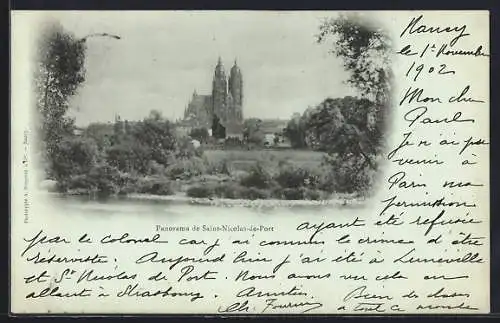 Nancy
le 1er Novembre
1902
Mon cher
Paul
Je n'ai pas pu
venir à
Paris ma
permission
Panorama de Saint-Nicolas-de-Port
ayant été refusée
par le colonel car j'ai commis le crime d'être
réserviste. Aujourd'hui j'ai été à Lunéville
et St Nicolas de Port. Nous avons vu cela en
allant à Strasbourg. Amitiés
Bien des choses
à tout ce monde
Ch. Fournier